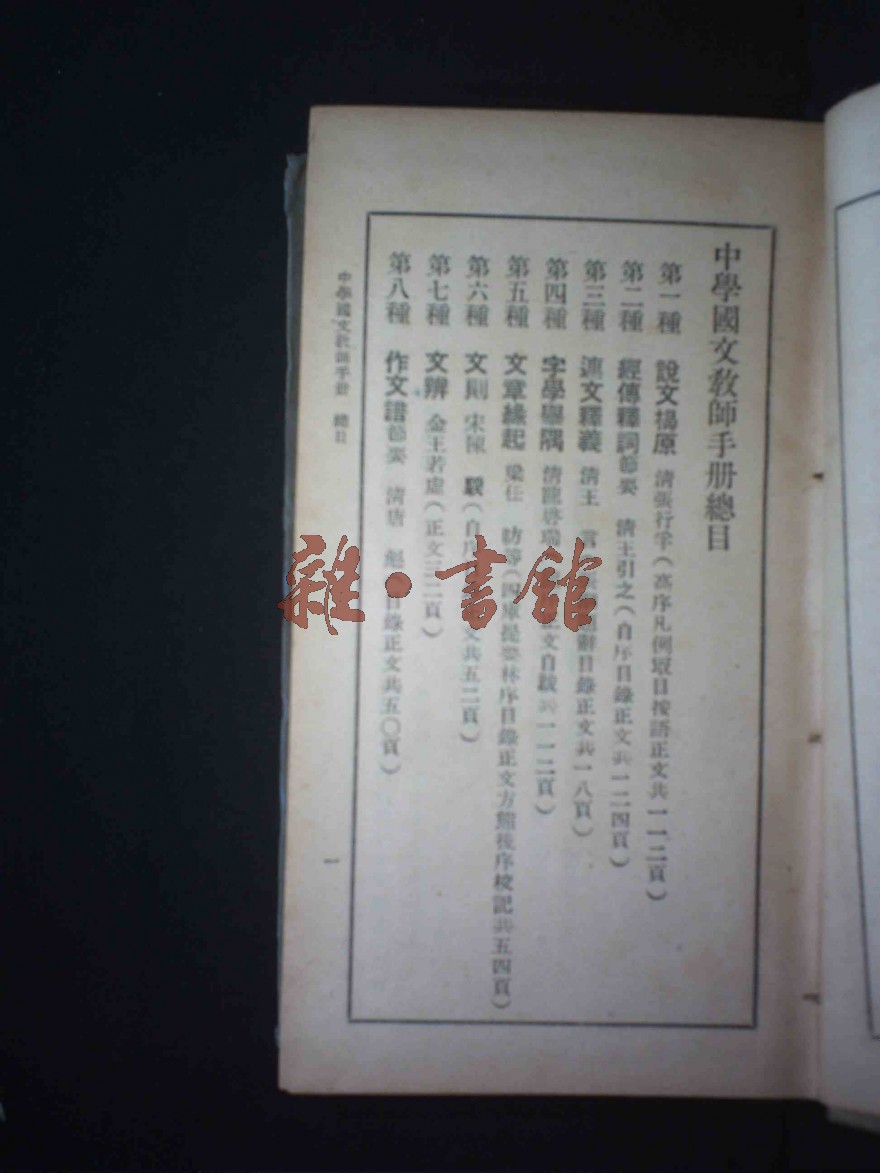 中學國文敎師手册總目
第一種 說文揭原 淸張行孚(高序凡例眾目按語正文共一一二頁)
第二種 經傳釋詞節要 淸王引之(自序目錄正文共一二四頁)
第三種 連文釋義 淸王 言 目錄正文共一八頁)
第四種 字學舉隅 淸龍啓瑞 正文自跋共一一二頁)
第五種 文章緣起 梁任 昉等(四庫提要林序目錄正文方熊後序校記共五四頁)
第六種 文則 宋陳 騤(自序 文共五二頁)
第七種 文辨 金王若虛(正文三二頁)
第八種 作文譜節要 淸唐 彪 目錄正文共五〇頁)
中學國文敎師手册 總目
一
雜·書館